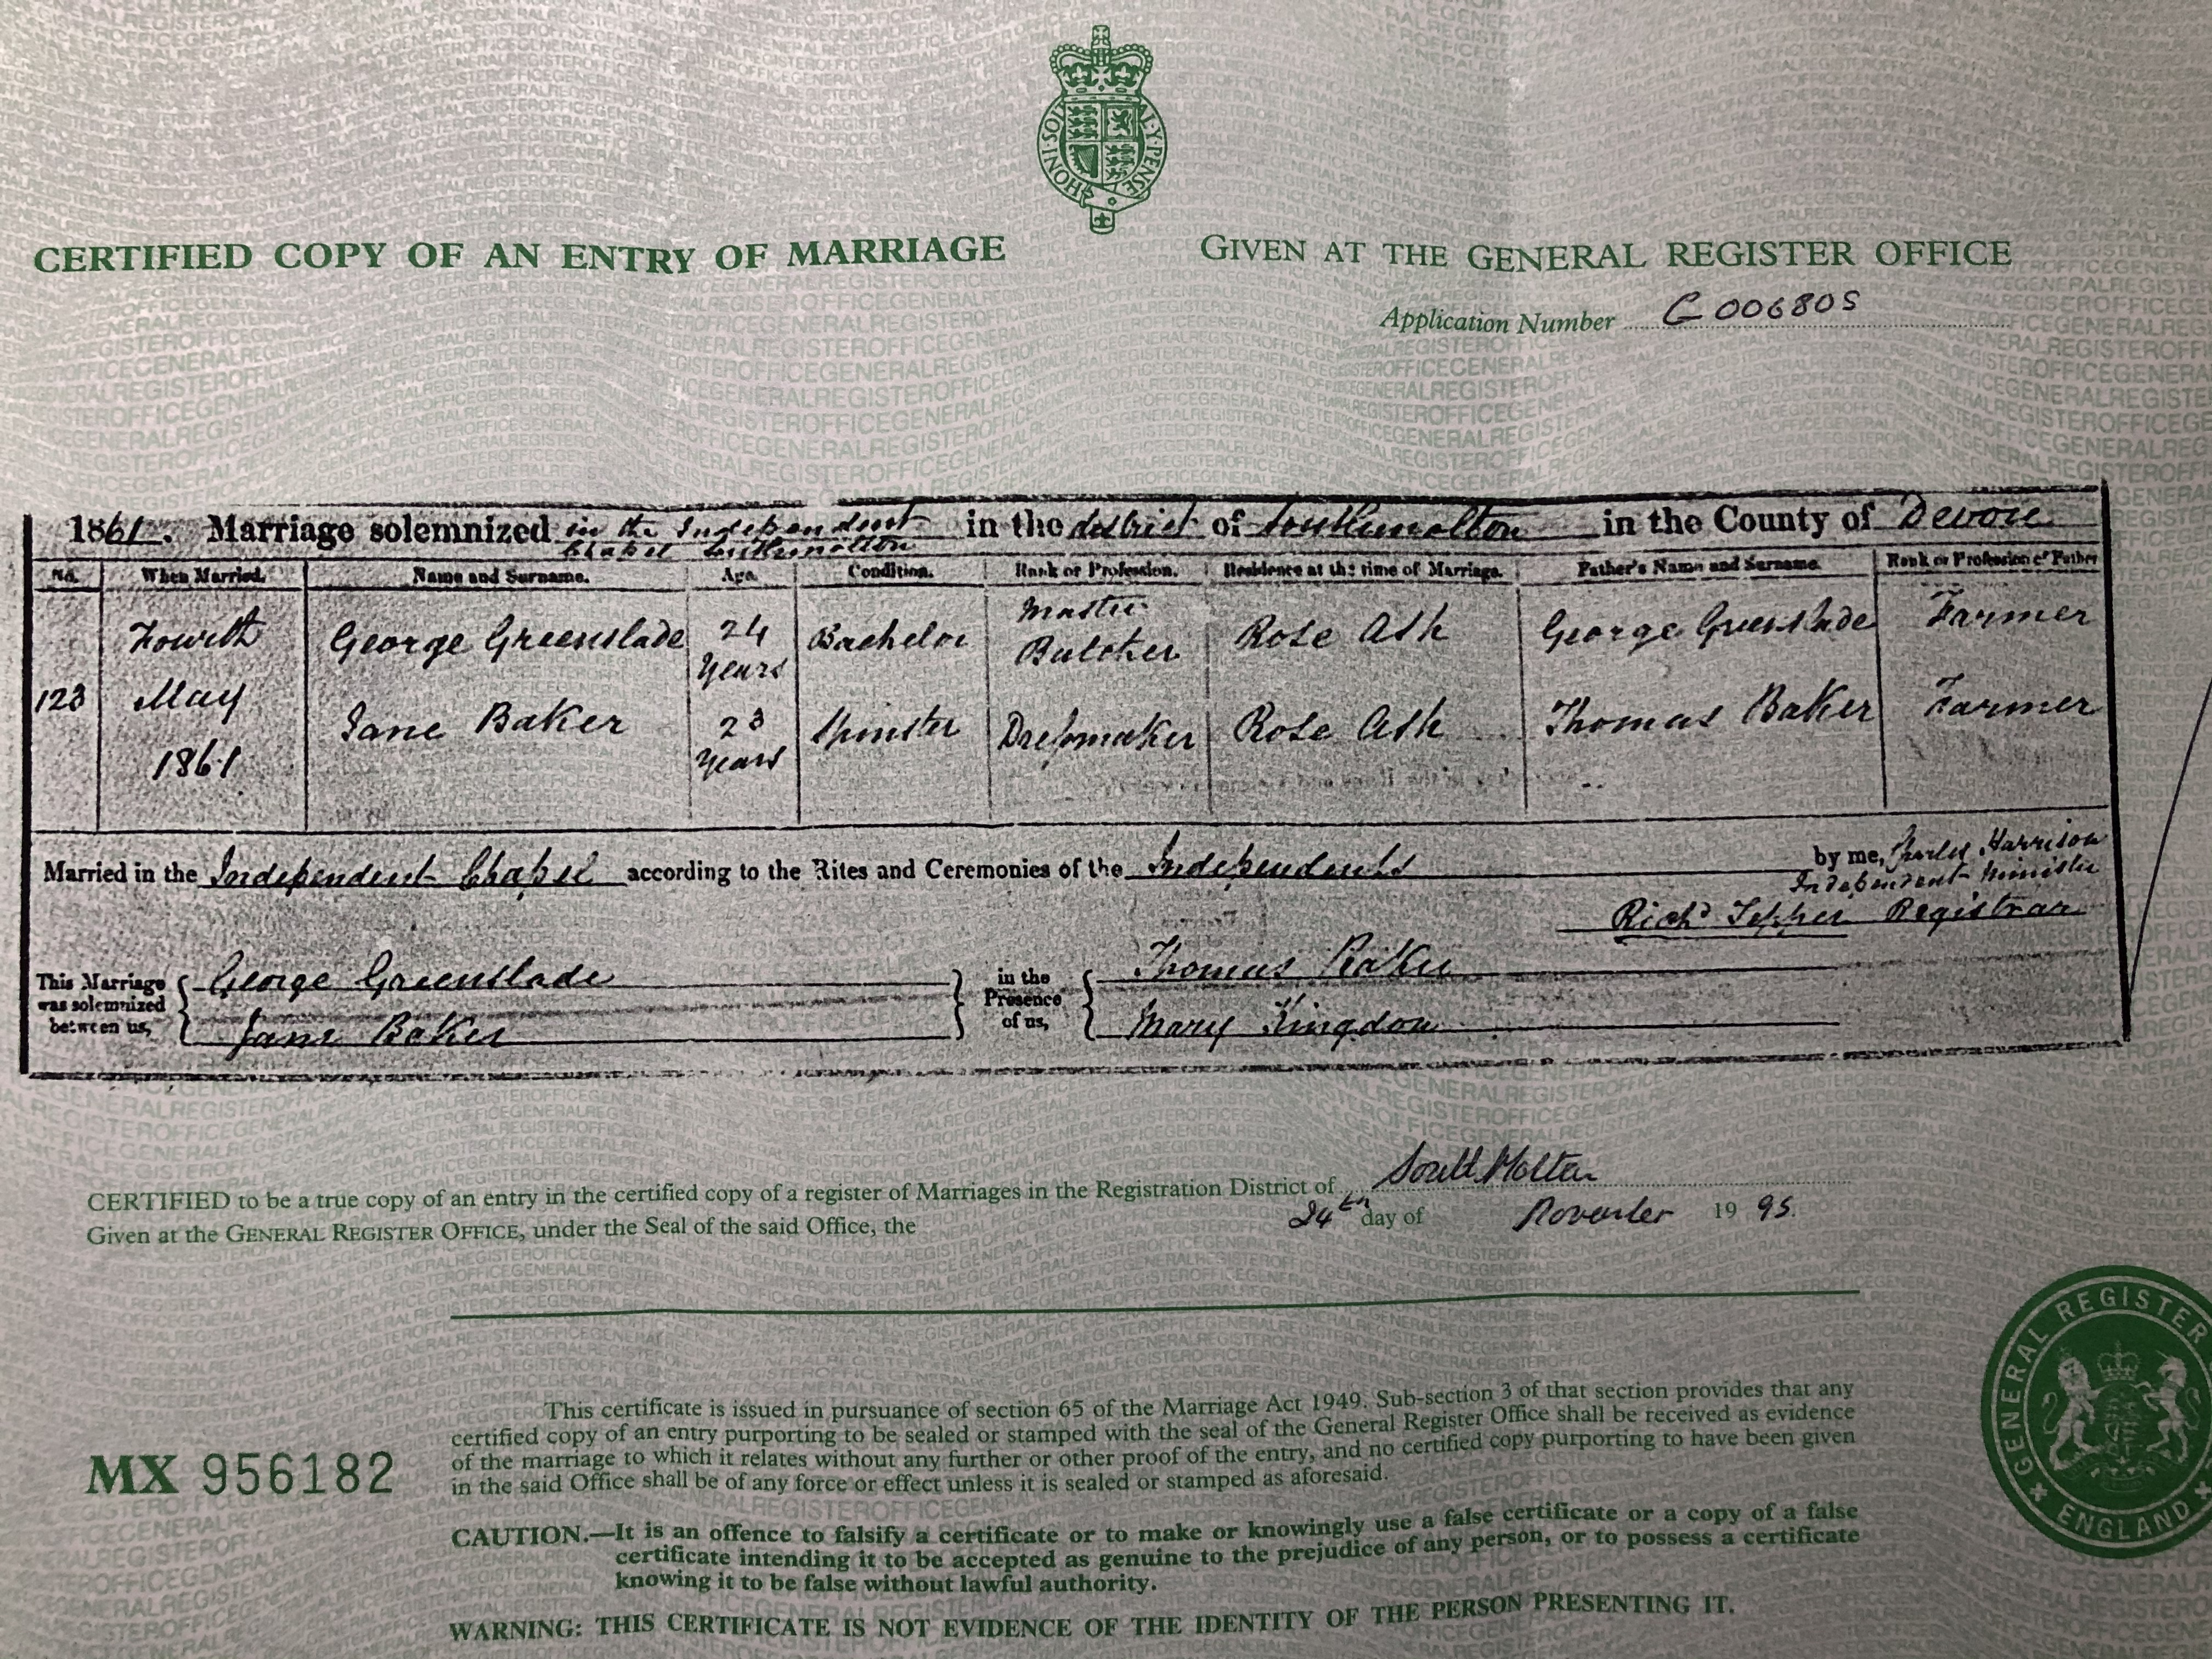 HONI·SOI AL·Y·PENSE
CERTIFIED COPY OF AN ENTRY OF MARRIAGE
GIVEN AT THE GENERAL REGISTER OFFICE
Application Number G 006805
1861. Marriage solemnized in the Independent in the district of Southmolton in the County of Devon
Chapel Southmolton
No. When Married. Name and Surname. Age. Condition. Rank or Profession. Residence at the time of Marriage. Father's Name and Surname. Rank or Profession of Father
123 Fourth May 1861 George Greenslade 24 Years Bachelor Master Butcher Rose Ash George Greenslade Farmer
Jane Baker 23 Years Spinster Dressmaker Rose Ash Thomas Baker Farmer
Married in the Independent Chapel according to the Rites and Ceremonies of the Independents by me, Charles Harrison
Independent Minister
Richd Tepper Registrar
This Marriage was solemnized between us, George Greenslade in the Presence of us, Thomas Baker
Jane Baker Mary Kingdon
CERTIFIED to be a true copy of an entry in the certified copy of a register of Marriages in the Registration District of South Molton
Given at the GENERAL REGISTER OFFICE, under the Seal of the said Office, the 24th day of November 19 95.
This certificate is issued in pursuance of section 65 of the Marriage Act 1949. Sub-section 3 of that section provides that any
certified copy of an entry purporting to be sealed or stamped with the seal of the General Register Office shall be received as evidence
of the marriage to which it relates without any further or other proof of the entry, and no certified copy purporting to have been given
in the said Office shall be of any force or effect unless it is sealed or stamped as aforesaid.
MX 956182
CAUTION.—It is an offence to falsify a certificate or to make or knowingly use a false certificate or a copy of a false
certificate intending it to be accepted as genuine to the prejudice of any person, or to possess a certificate
knowing it to be false without lawful authority.
WARNING: THIS CERTIFICATE IS NOT EVIDENCE OF THE IDENTITY OF THE PERSON PRESENTING IT.
GENERAL REGISTER
ENGLAND